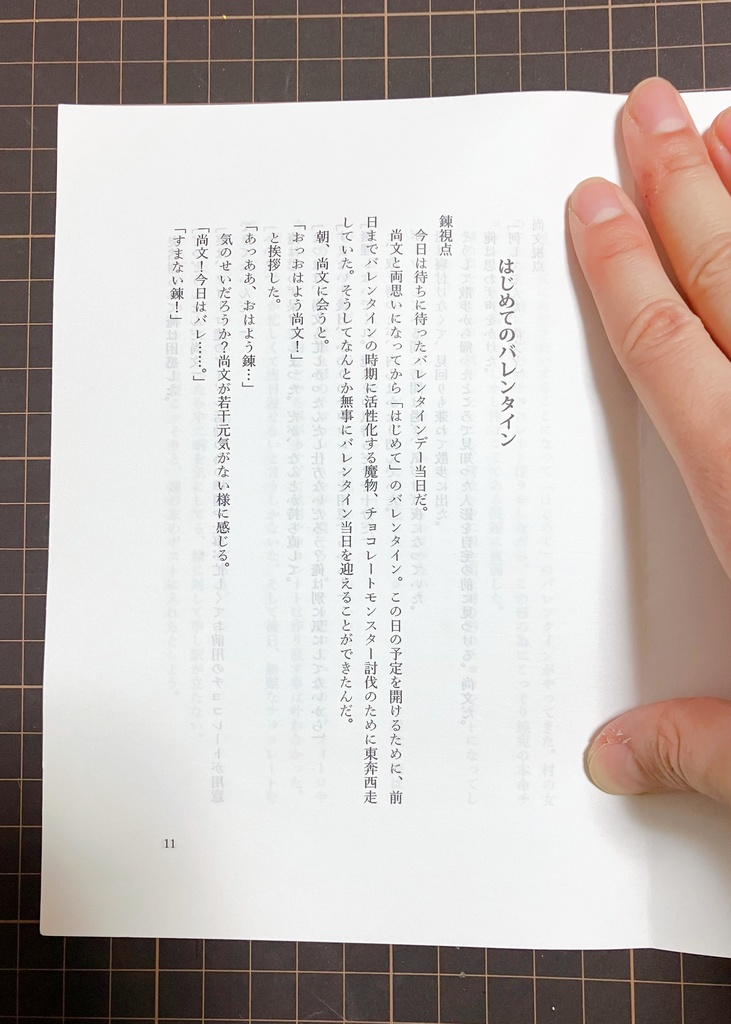 はじめてのバレンタイン
錬視点
今日は待ちに待ったバレンタインデー当日だ。
尚文と両思いになってから「はじめて」のバレンタイン。この日の予定を開けるために、前
日までバレンタインの時期に活性化する魔物、チョコレートモンスター討伐のために東奔西走
していた。そうしてなんとか無事にバレンタイン当日を迎えることができたんだ。
朝、尚文に会うと。
「おっおはよう尚文！」
と挨拶した。
「あっああ、おはよう錬…」
気のせいだろうか？尚文が若干元気がない様に感じる。
「尚文！今日はバレ……。」
「すまない錬！」
11